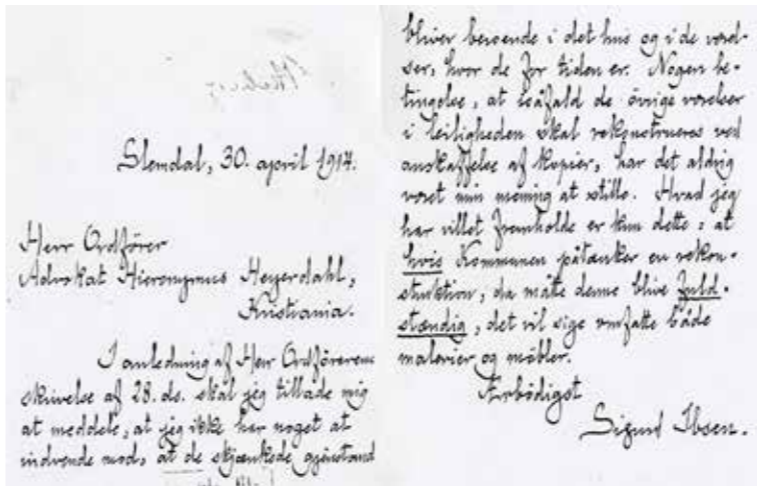 Slemdal, 30. april 1917.
Herr Ordförer
Advokat Hieronymus Heyerdahl,
Kristiania.
I anledning af Herr Ordförerens
skrivelse af 28. ds. skal jeg tillade mig
at meddele, at jeg ikke har noget at
indvende mod, at de skjænkede gjenstand
bliver beroende i det hus og i de værel-
ser, hvor de for tiden er. Nogen be-
tingelse, at isåfald de övrige værelser
i leiligheden skal rekonstrueres ved
anskaffelse af kopier, har det aldrig
været min mening at stille. Hvad jeg
har villet fremholde er kun dette: at
hvis Kommunen påtænker en rekon-
struktion, da måtte denne blive fuld-
stændig, det vil sige omfatte både
malerier og möbler.
Ærbödigst
Sigurd Ibsen.